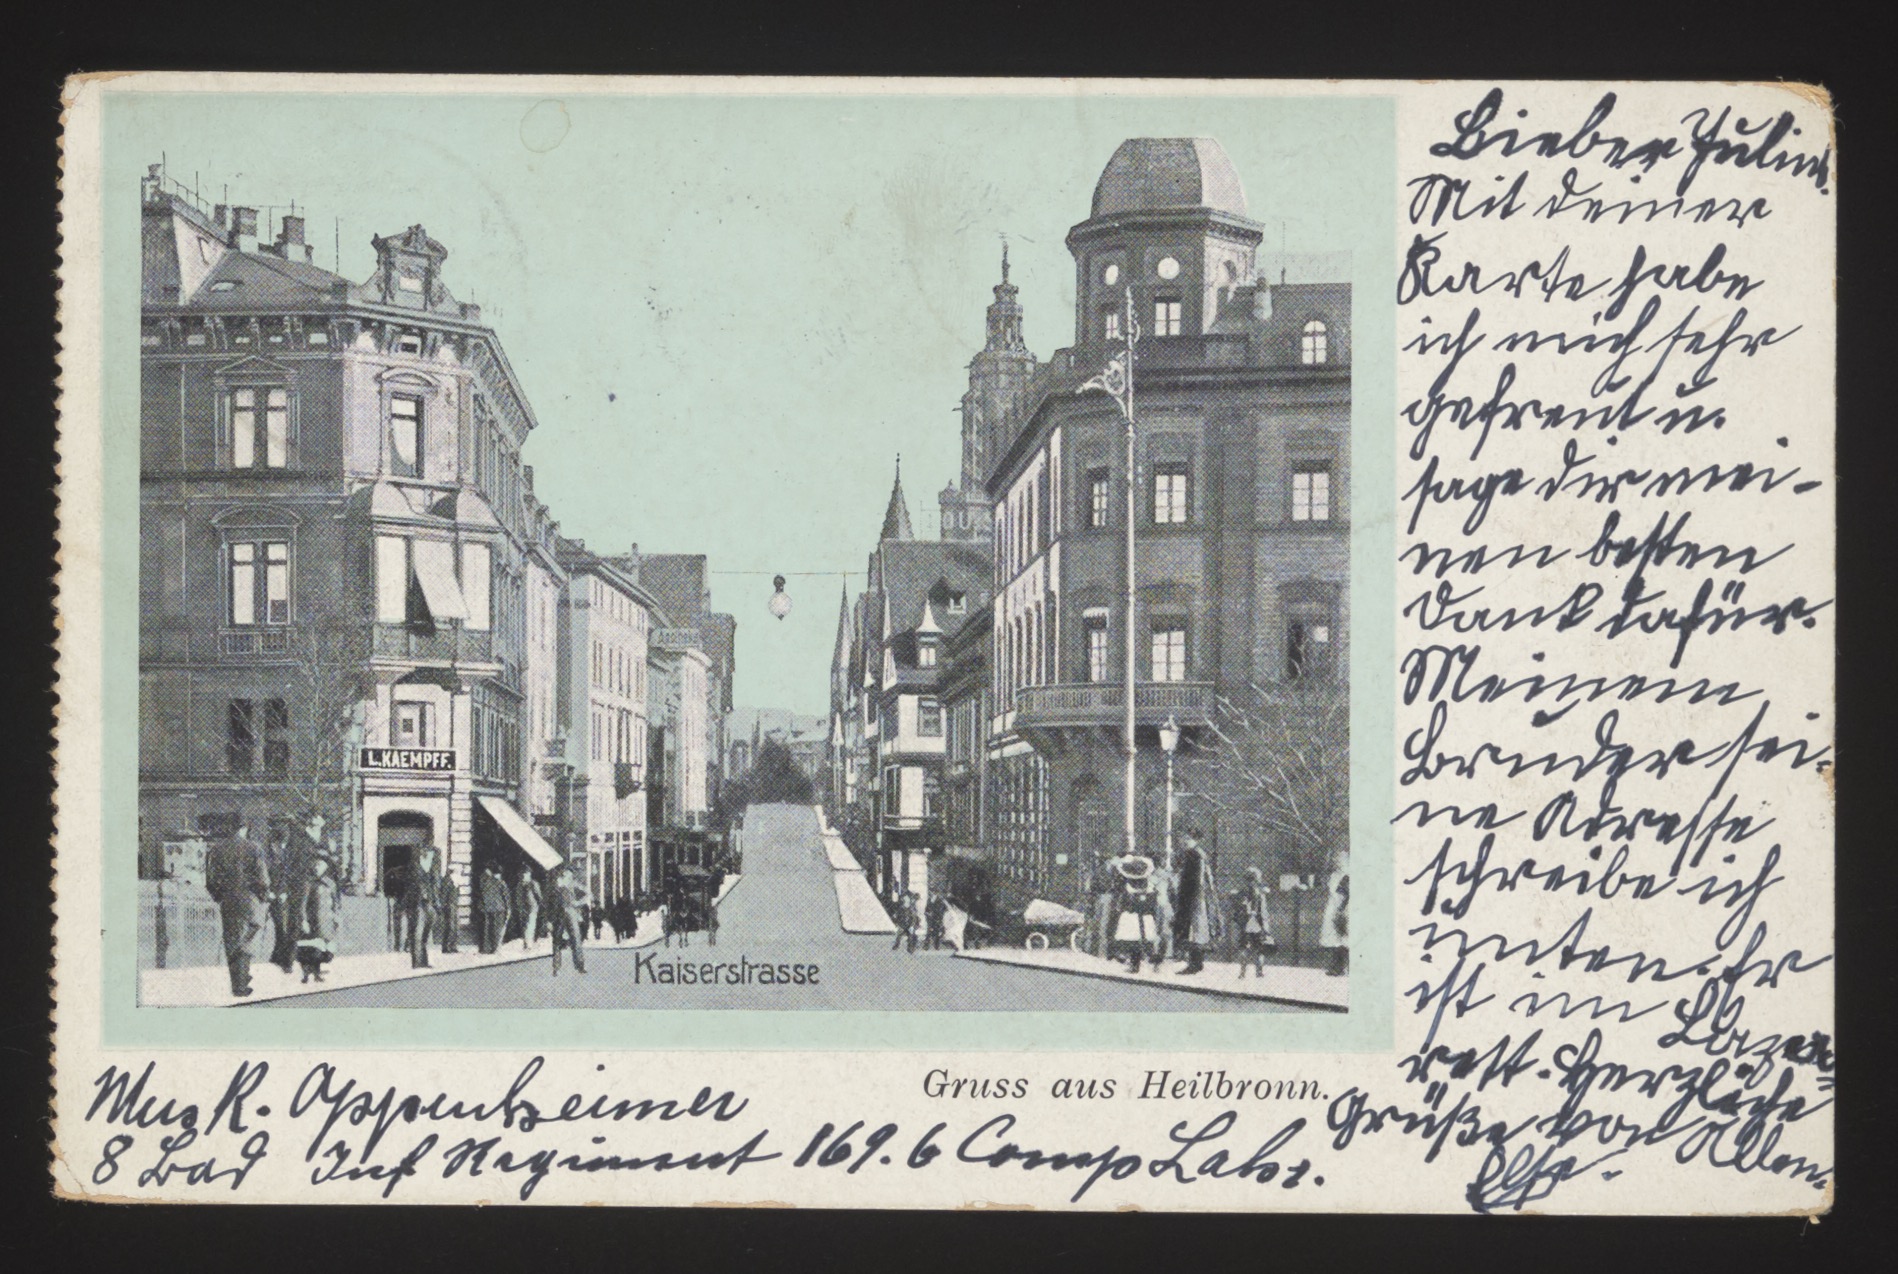 L. KAEMPFF.
Apotheke
Kaiserstrasse
Gruss aus Heilbronn.
Lieber Julius.
Mit deiner
Karte habe
ich mich sehr
gefreut u.
sage dir mei-
nen besten
Dank dafür.
Meinem
Bruder sei-
ne Adresse
schreibe ich
unten. Er
ist im Laza-
rett. Herzliche
Grüße von Allen.
Else.
Musk. Oppenheimer
8 Bad Inf Regiment 169. 6 Comp Lahr.